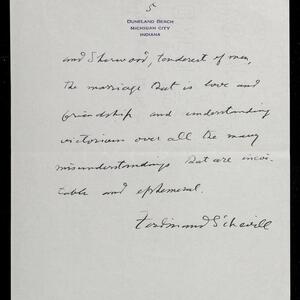 5
DUNELAND BEACH
MICHIGAN CITY
INDIANA
and Sherwood, tenderest of men,
the marriage that is love and
friendship and understanding
victorious over all the many
misunderstandings that are inevi-
table and ephemeral.
Ferdinand Schevill